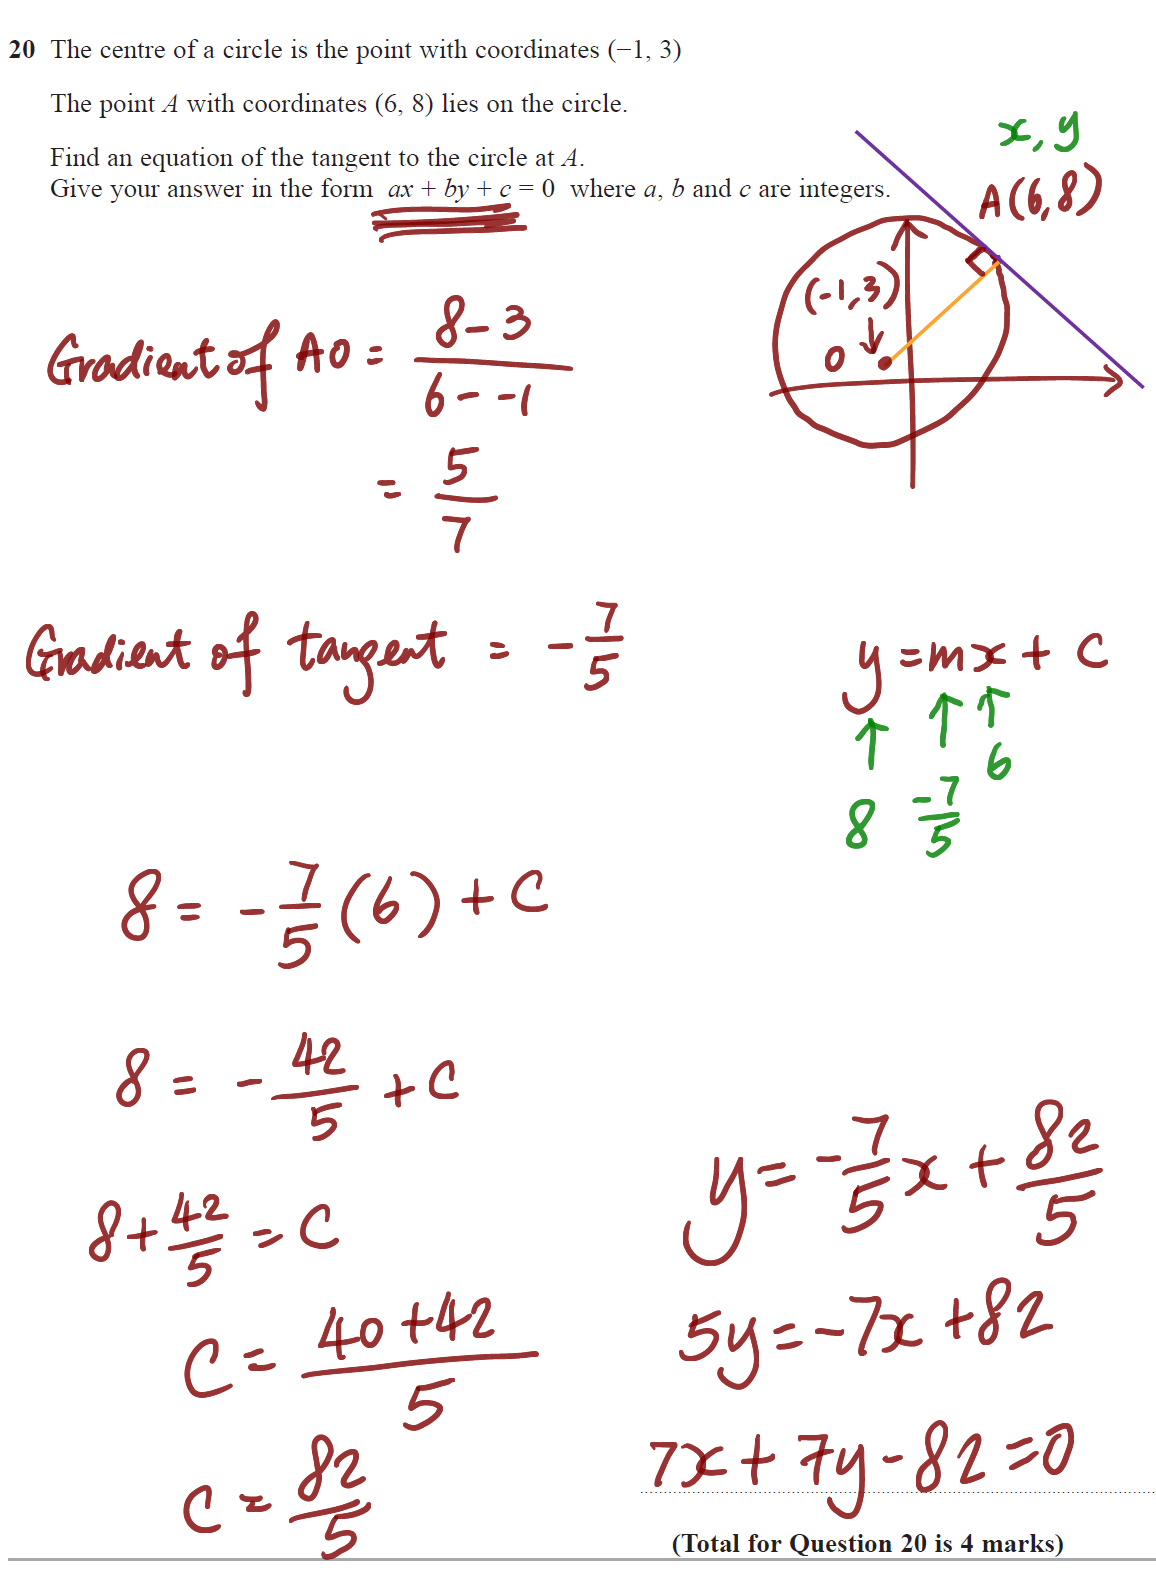 20 The centre of a circle is the point with coordinates (−1, 3)
The point A with coordinates (6, 8) lies on the circle.
Find an equation of the tangent to the circle at A.
Give your answer in the form ax + by + c = 0 where a, b and c are integers.
x, y
A(6,8)
(-1,3)
O
Gradient of AO = 8-3 / 6--1
= 5/7
Gradient of tangent = -7/5
y = mx + C
8 -7/5 6
8 = -7/5 (6) + C
8 = -42/5 + C
8 + 42/5 = C
C = 40+42 / 5
C = 82/5
y = -7/5 x + 82/5
5y = -7x + 82
7x + 7y - 82 = 0
(Total for Question 20 is 4 marks)